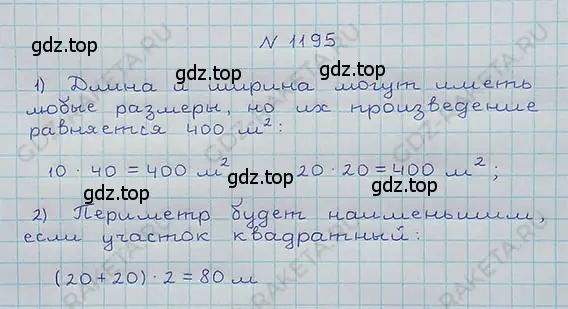 N 1195
gdz.top gdz.top
1) Длина и ширина могут иметь
любые размеры, но их произведение
равняется 400 м²:
gdz.top gdz.top
10 · 40 = 400 м² 20 · 20 = 400 м²;
gdz.top gdz.top
2) Периметр будет наименьшим,
если участок квадратный:
gdz.top gdz.top
(20+20) · 2 = 80 м
GDZ-RAKETA.RU